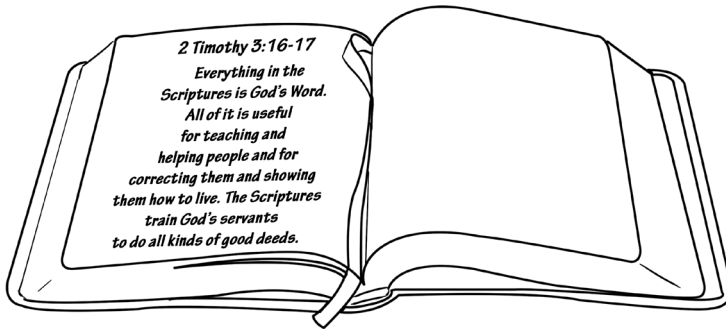 2 Timothy 3:16-17
Everything in the
Scriptures is God's Word.
All of it is useful
for teaching and
helping people and for
correcting them and showing
them how to live. The Scriptures
train God's servants
to do all kinds of good deeds.